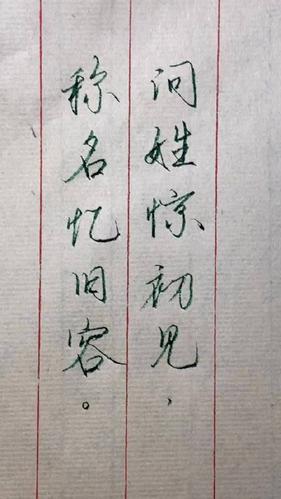 问姓惊初见，
称名忆旧容。